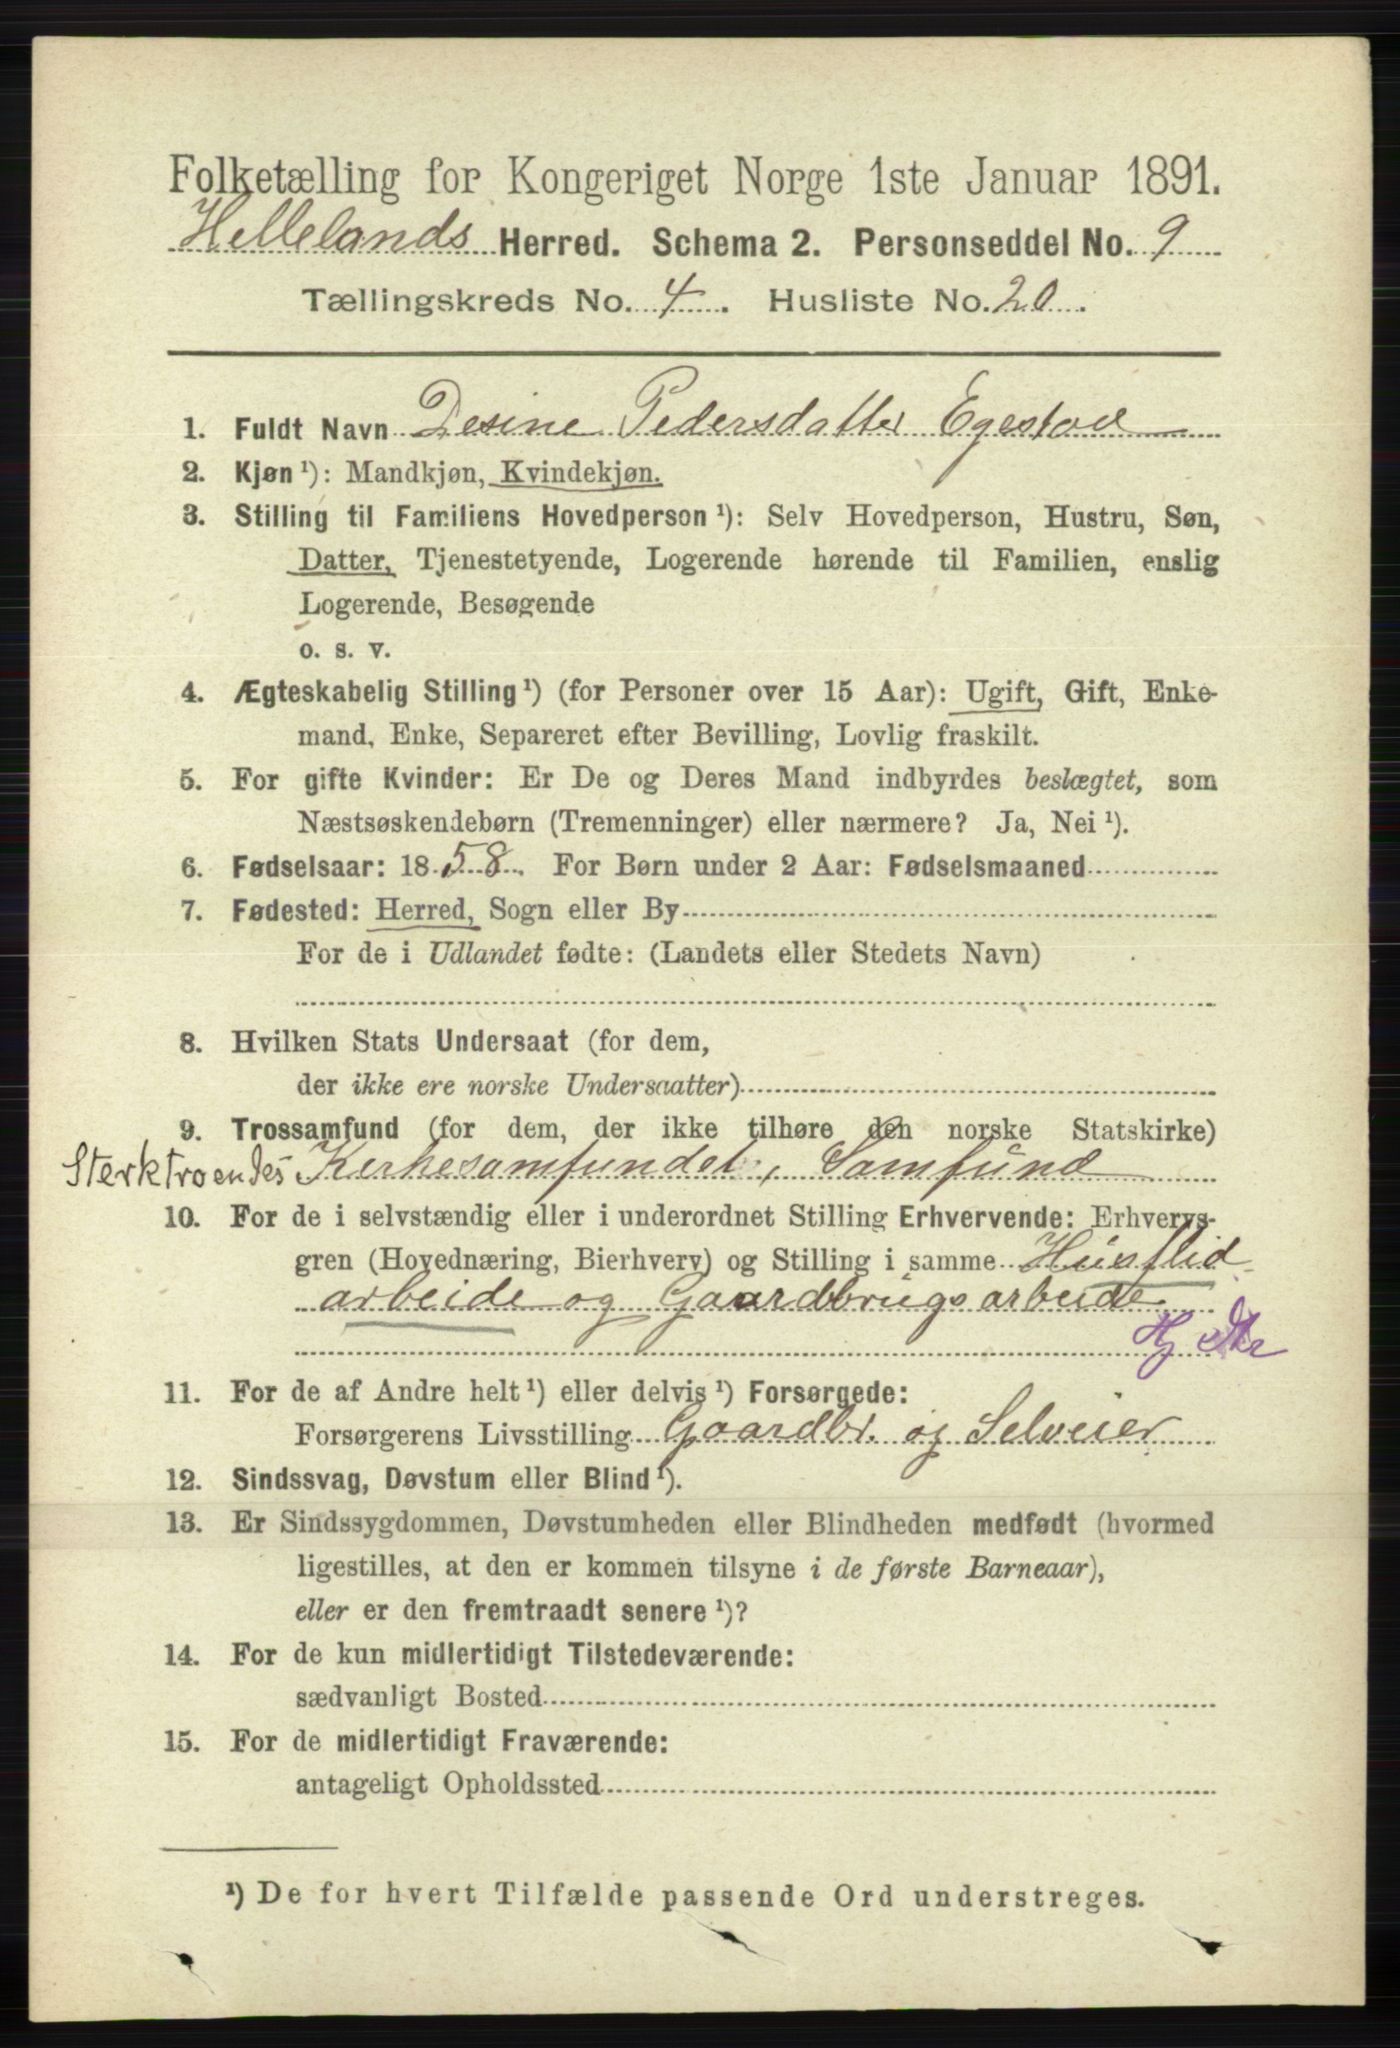 Folketælling for Kongeriget Norge 1ste Januar 1891.
Hellelands Herred. Schema 2. Personseddel No. 9
Tællingskreds No. 4. Husliste No. 20.
1. Fuldt Navn Desine Pedersdatter Egestad
2. Kjøn¹): Mandkjøn, Kvindekjøn.
3. Stilling til Familiens Hovedperson¹): Selv Hovedperson, Hustru, Søn,
Datter, Tjenestetyende, Logerende hørende til Familien, enslig
Logerende, Besøgende
o. s. v.
4. Ægteskabelig Stilling¹) (for Personer over 15 Aar): Ugift, Gift, Enke-
mand, Enke, Separeret efter Bevilling, Lovlig fraskilt.
5. For gifte Kvinder: Er De og Deres Mand indbyrdes beslægtet, som
Næstsøskendebørn (Tremenninger) eller nærmere? Ja, Nei¹).
6. Fødselsaar: 1858. For Børn under 2 Aar: Fødselsmaaned
7. Fødested: Herred, Sogn eller By
For de i Udlandet fødte: (Landets eller Stedets Navn)
8. Hvilken Stats Undersaat (for dem,
der ikke ere norske Undersaatter)
9. Trossamfund (for dem, der ikke tilhøre den norske Statskirke)
Sterktroendes Kirkesamfundet, Samfund
10. For de i selvstændig eller i underordnet Stilling Erhvervende: Erhvervs-
gren (Hovednæring, Bierhverv) og Stilling i samme Husflid
arbeide og Gaardbrugsarbeide
Hj dtr
11. For de af Andre helt¹) eller delvis¹) Forsørgede:
Forsørgerens Livsstilling Gaardbr. og Selveier
12. Sindssvag, Døvstum eller Blind¹).
13. Er Sindssygdommen, Døvstumheden eller Blindheden medfødt (hvormed
ligestilles, at den er kommen tilsyne i de første Barneaar),
eller er den fremtraadt senere¹)?
14. For de kun midlertidigt Tilstedeværende:
sædvanligt Bosted
15. For de midlertidigt Fraværende:
antageligt Opholdssted
¹) De for hvert Tilfælde passende Ord understreges.